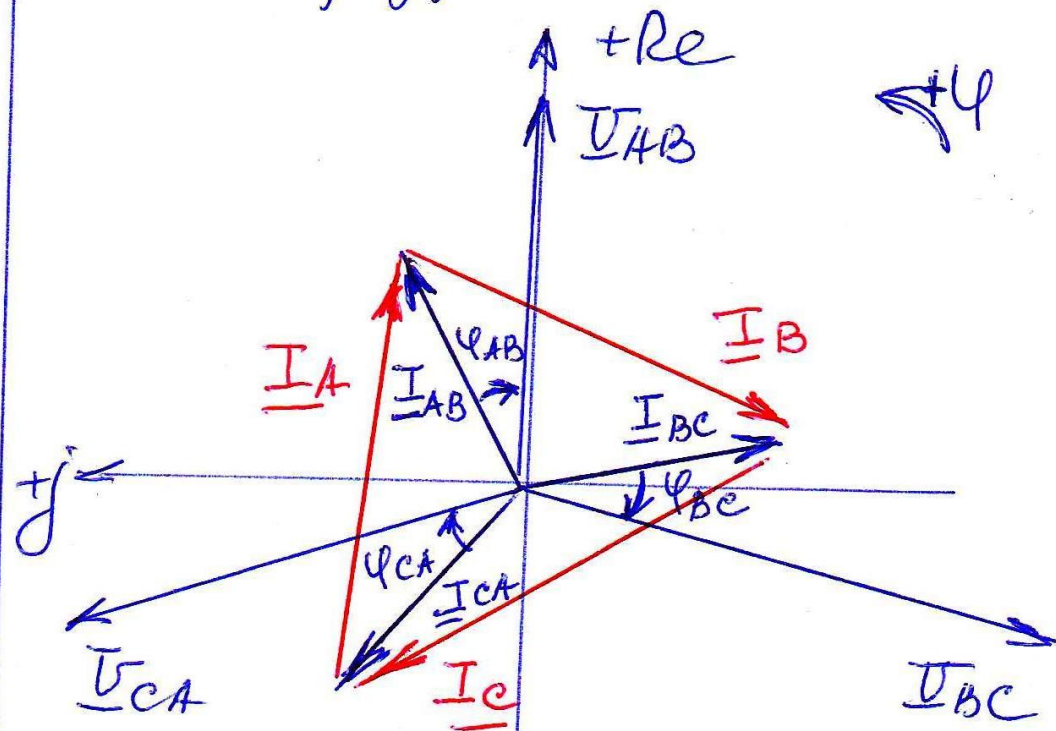 +Re
+φ
U̲AB
I̲B
φAB
I̲A
I̲AB
I̲BC
+j
φBC
φCA
I̲CA
U̲CA
I̲C
U̲BC